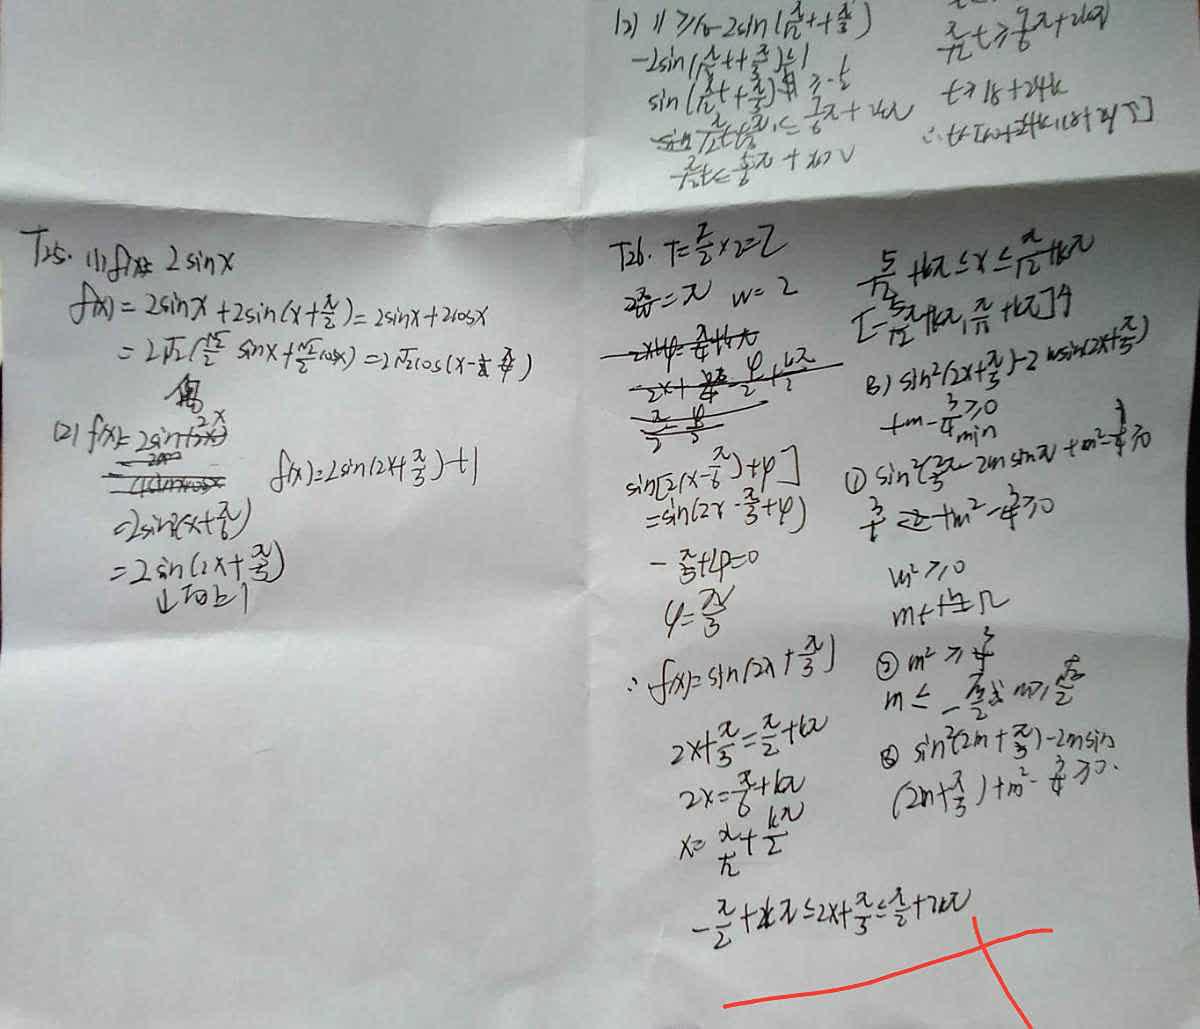 (2) 11 ≥ 10-2sin(π/12 t + π/3)
-2sin(π/12 t + π/3) ≤ 1
sin(π/12 t + π/3) ≥ -1/2
π/12 t + π/3 ≤ 7/6 π + 2kπ
π/12 t ≤ 5/6 π +
π/12 t ≥ π + 2kπ
t ≥ 18 + 24k
T25. (1) f(x)= 2sinx
f(x) = 2sinx + 2sin(x + π/2) = 2sinx + 2cosx
= 2√2(√2/2 sinx + √2/2 cosx) = 2√2cos(x - π/4)
(2) f(x)= 2sin 2x
= 2sin2(x + π/6)
= 2sin(2x + π/3)
↓ 向上 1
f(x) = 2sin(2x + π/3) + 1
T26. T = π/2 × 2 = π
2π/ω = π w = 2
sin[2(x - π/6) + φ]
= sin(2x - π/3 + φ)
- π/3 + φ = 0
φ = π/3
∴ f(x) = sin(2x + π/3)
2x + π/3 = π/2 + kπ
2x = π/6 + kπ
x = π/12 + kπ/2
- π/2 + 2kπ ≤ 2x + π/3 ≤ π/2 + 2kπ
+ kπ ≤ x ≤ π/12 + kπ
[-5/12 π + kπ, π/12 + kπ] ↑
(3) sin²(2x + π/3) - 2msin(2x + π/3)
+ m - 3/4 ≥ 0
min
① sin² 2π/3 - 2m sin π + m² - 3/4 ≥ 0
3/4 + m² - 3/4 ≥ 0
m² ≥ 0
② m² ≥ 3/4
m ≤ - √3/2 或 m ≥ √3/2
③ sin²(2m + π/3) - 2m sin
(2m + π/3) + m² - 3/4 ≥ 0.